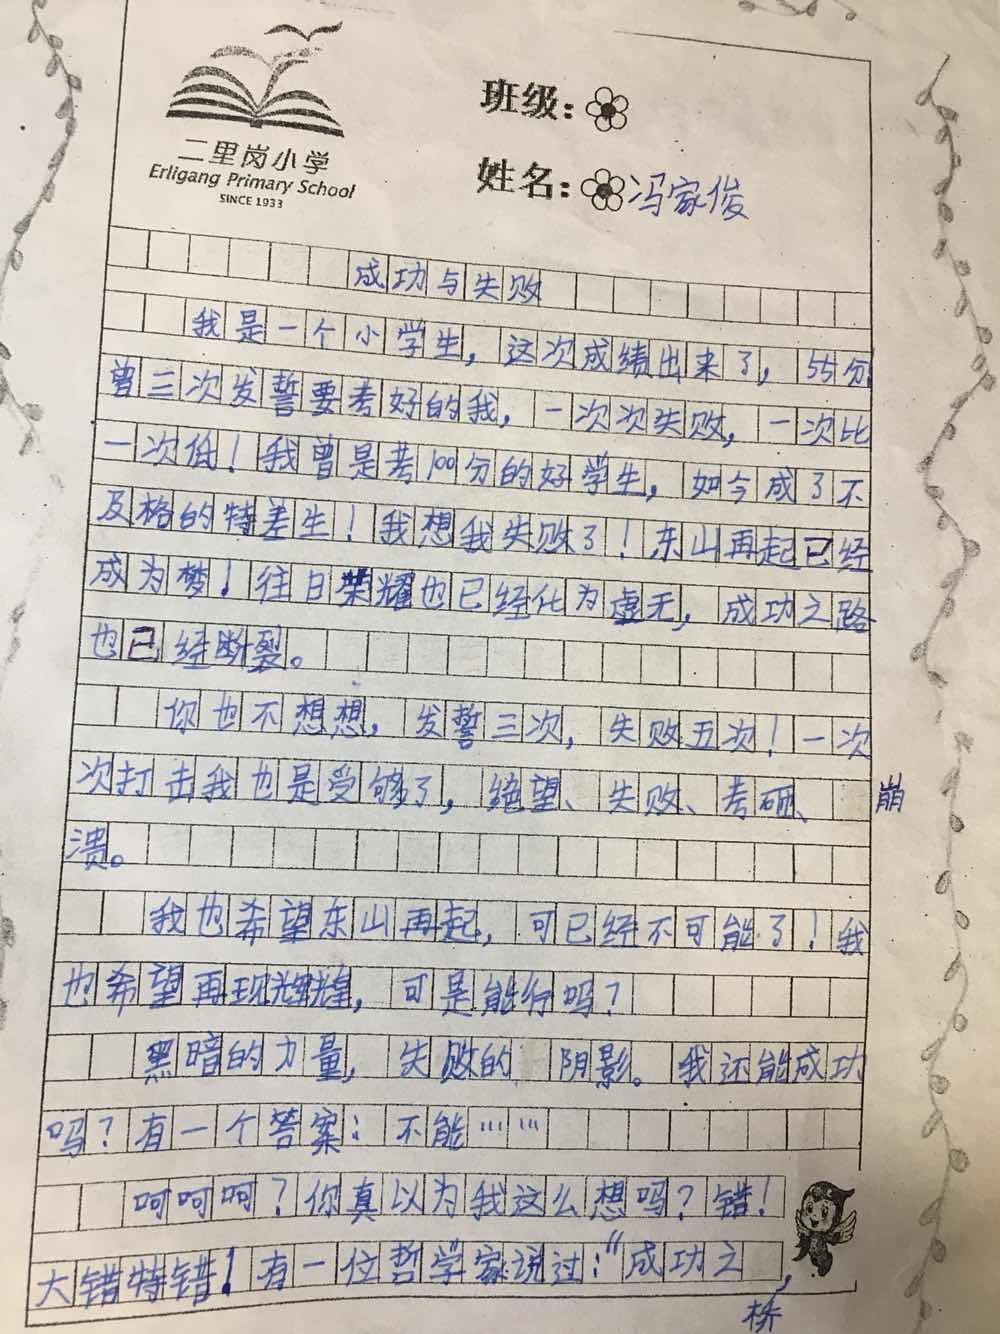 二里岗小学
Erligang Primary School
SINCE 1933
班级:
姓名: 冯家俊
成功与失败
我是一个小学生，这次成绩出来了，55分，
曾三次发誓要考好的我，一次次失败，一次比
一次低！我曾是考100分的好学生，如今成了不
及格的特差生！我想我失败了！东山再起已经
成为梦！往日荣耀也已经化为虚无，成功之路
也已经断裂。
你也不想想，发誓三次，失败五次！一次
次打击我也是受够了，绝望、失败、考研、崩
溃。
我也希望东山再起，可已经不可能了！我
也希望再现辉煌，可是能行吗？
黑暗的力量，失败的 阴影。我还能成功
吗？有一个答案：不能……
呵呵呵？你真以为我这么想吗？错！
大错特错！有一位哲学家说过：“成功之 ，
桥